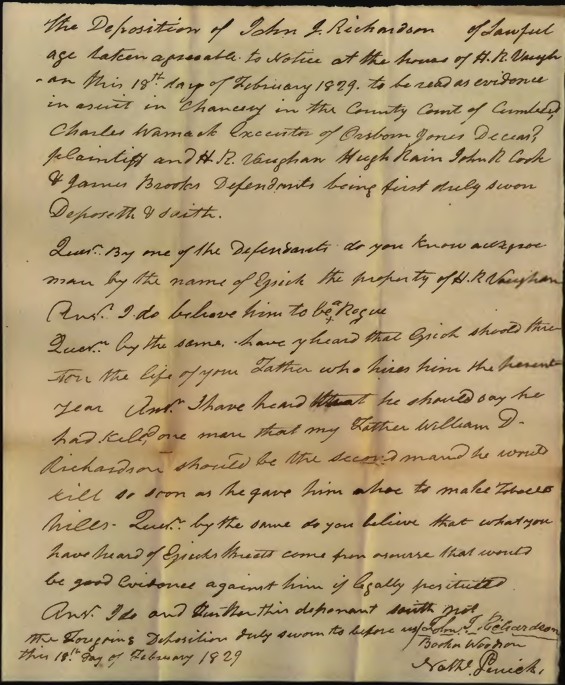 The Deposition of John J. Richardson of Lawful
age taken agreeable to Notice at the house of H.R. Vaugh
-an this 18th day of February 1829. to be read as evidence
in a suit in Chancery in the County Court of Cumbld,
Charles Womack Executor of Orsborn Jones Deceasd
plaintiff and H.R. Vaughan Hugh Rain John R Cook
& James Brooks Defendants being first duly sworn
Deposeth & saith.
Quesn. By one of the Defendants do you know a negroe
man by the name of Esick the property of H.R Vaughan
Ansr. I do believe him to be a Rogue
Quesn. by the same. have y heard that Esick should thre
-ton the life of your Father who hires him the present
year Ansr. I have heard that he should say he
had killd one man that my Father William D-
Richardson should be the second man he would
kill so soon as he gave him a hoe to make Tobacco
hills- Quesn. by the same do you believe that what you
have heard of Esicks threats come from a sourse that would
be good Evidence against him if legally
Ansr. I do and further this deponant saith not
the Foregoing Deposition duly sworn to before us John J. Richardson
this 18th. day of February 1829
Booker Woodson
Nathl Penick